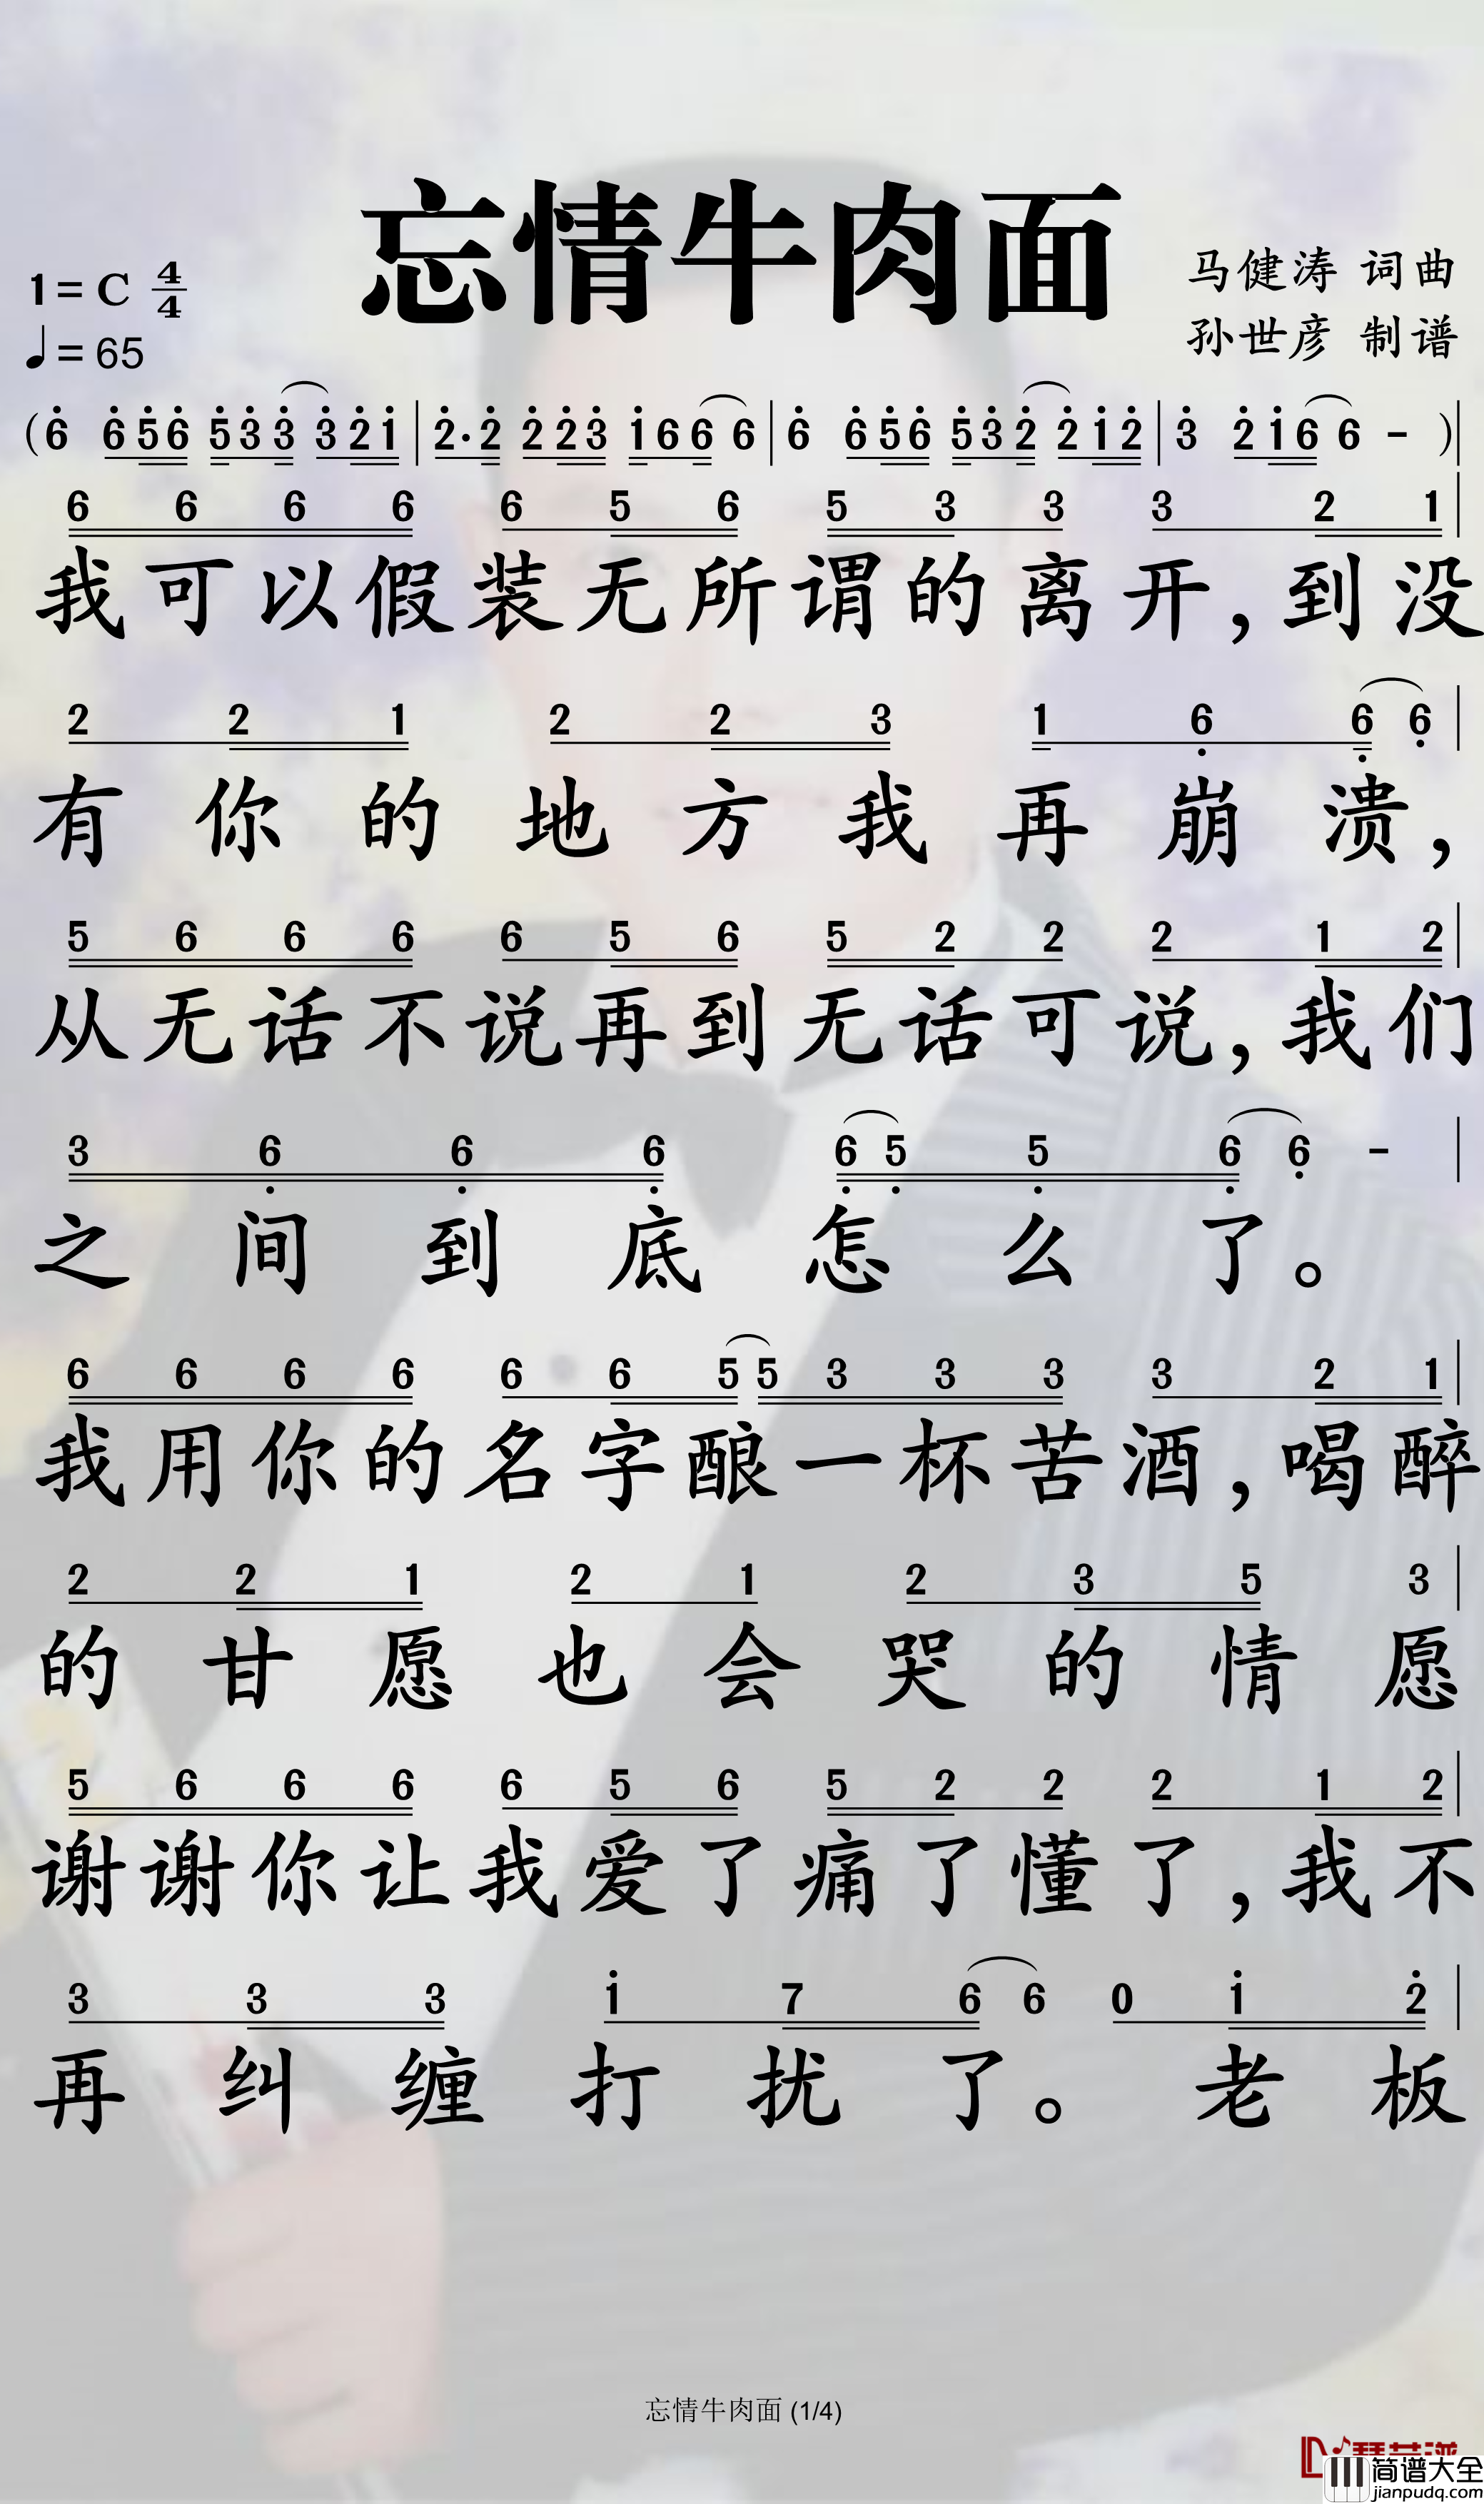 忘情牛肉面
1=C 4/4
马健涛 词曲
♩=65
孙世彦 制谱
(6 6 5 6 5 3 3 3 2 1 | 2· 2 2 2 3 1 6 6 6 | 6 6 5 6 5 3 2 2 1 2 | 3 2 1 6 6 - )|
6 6 6 6 6 5 6 5 3 3 3 2 1 |
我可以假装无所谓的离开,到没
2 2 1 2 2 3 1 6 6 6 |
有你的地方我再崩溃,
5 6 6 6 6 5 6 5 2 2 2 1 2 |
从无话不说再到无话可说,我们
3 6 6 6 6 5 5 6 6 - |
之间到底怎么了。
6 6 6 6 6 6 5 5 3 3 3 3 2 1 |
我用你的名字酿一杯苦酒,喝醉
2 2 1 2 1 2 3 5 3 |
的甘愿也会哭的情愿
5 6 6 6 6 5 6 5 2 2 2 1 2 |
谢谢你让我爱了痛了懂了,我不
3 3 3 1 7 6 6 0 1 2 |
再纠缠打扰了。老板
忘情牛肉面 (1/4)
简谱大全
jianpudq.com